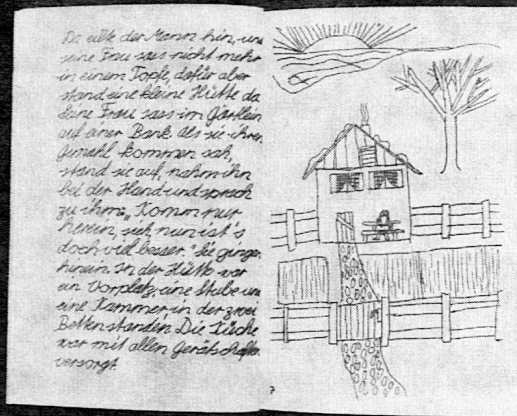 Da eilte der Mann hin, und
seine Frau sass nicht mehr
in einem Topfe, dafür aber
stand eine kleine Hütte da
seine Frau sass im Gärtlein
auf einer Bank. Als sie ihren
Gemahl kommen sah,
stand sie auf, nahm ihn
bei der Hand und sprach
zu ihm: „Komm nur
herein, sieh, nun ist's
doch viel besser." Sie gingen
hinein. In der Hütte war
ein Vorplatz, eine Stube und
eine Kammer in der zwei
Betten standen. Die Küche
war mit allen Gerätschaften
versorgt.
7